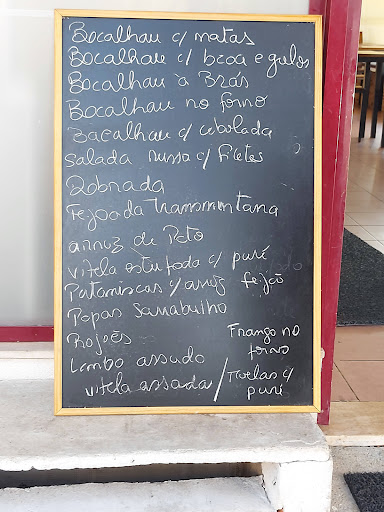 Bacalhau c/ natas
Bacalhau c/ broa e grelos
Bacalhau à Brás
Bacalhau no forno
Bacalhau c/ cebolada
Salada russa c/ filetes
Dobrada
Feijoada transmontana
arroz de Pato
vitela estufada c/ puré
Pataniscas c/ arroz feijão
Papas Sarrabulho
Rojões
Frango no
forno
Lombo assado
vitela assada / Moelas c/
puré